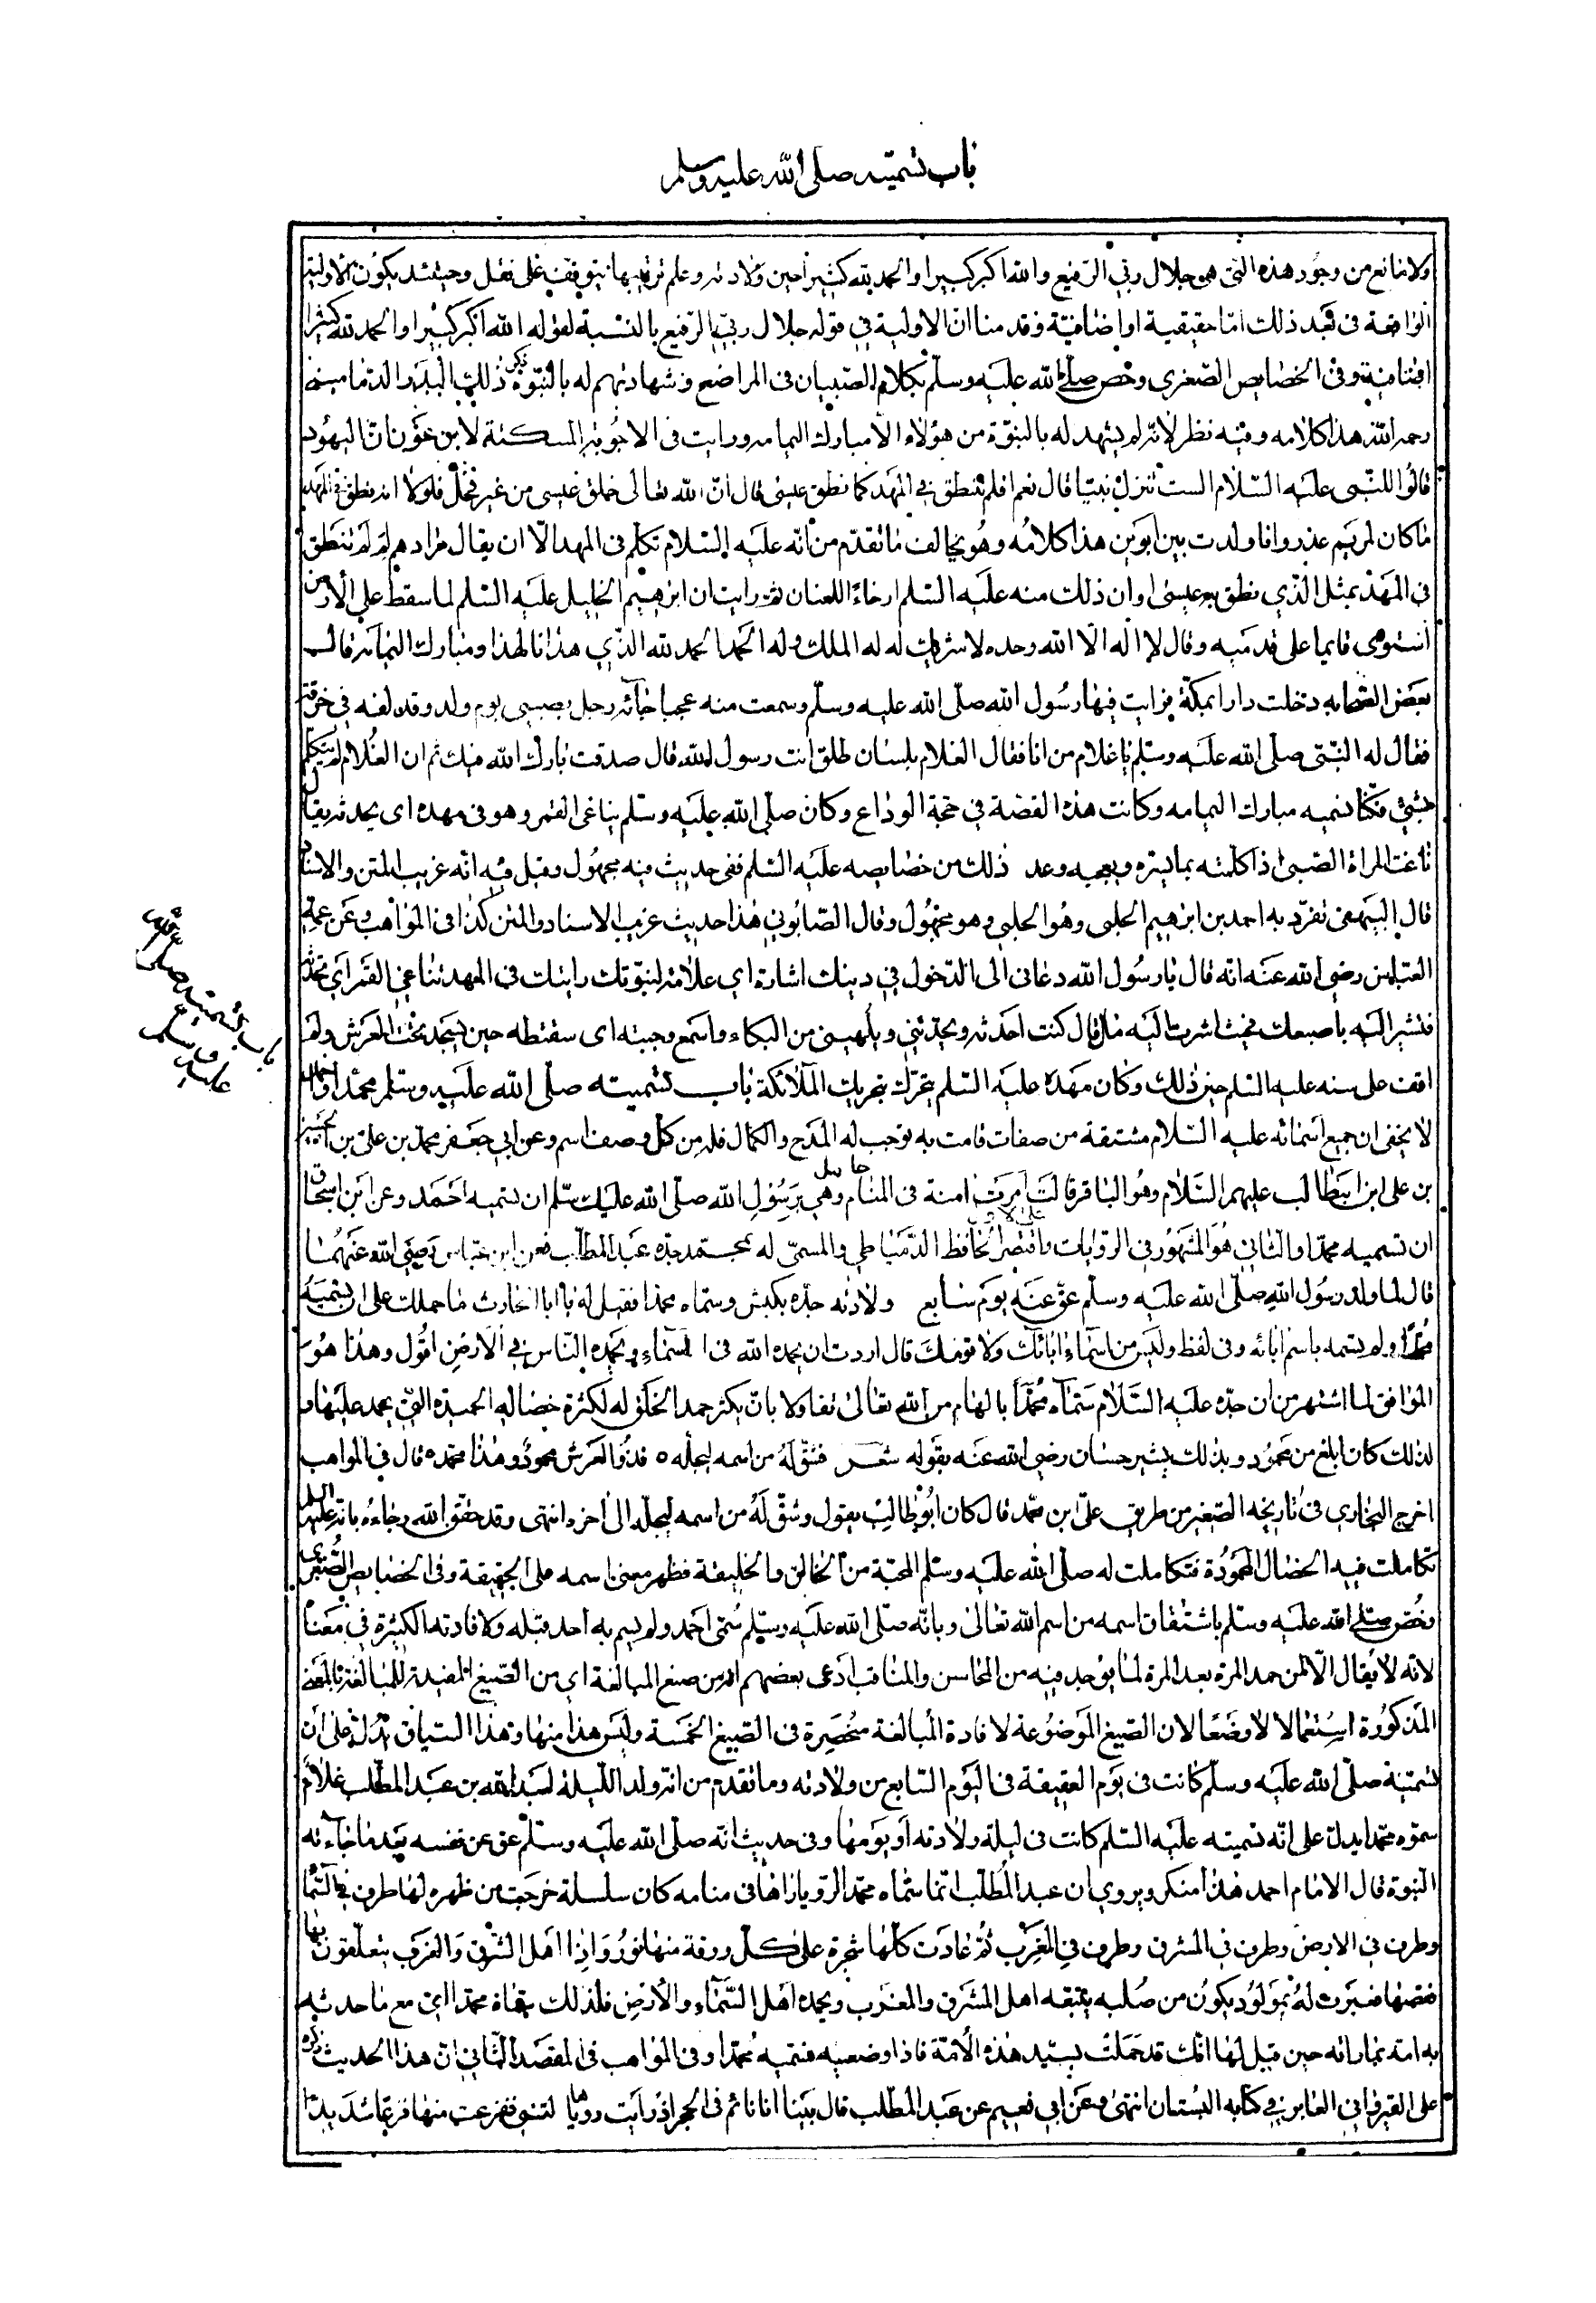 باب تسميته صلى الله عليه وسلم
ولا مانع من وجود هذه التي هي جلال ربي الرفيع والله اكبر كبيرا والحمد لله كثيرا حين ولادته وعلم ترتيبها يتوقف على نقل وحينئذ يكون الاولية
الواقعة في بعد ذلك اما حقيقية او اضافية وقد منا ان الاولية في قوله جلال ربي الرفيع بالنسبة لقوله الله اكبر كبيرا والحمد لله كثيرا
اضافية وفي الخصايص الصغرى وخص صلى الله عليه وسلم بكلام الصبيان في المراضع وشهادتهم له بالنبوة ذكر ذلك البدر الدماميني
رحمه الله هذا كلامه وفيه نظر لانه لم يشهد له بالنبوة من هؤلاء الا مبارك اليمامه ورايت في الاجوبة المسكتة لابن عون ان اليهود
قالوا للنبي عليه السلام الست تنزل نبيا قال نعم فلم لم تنطق في المهد كما نطق عيسى قال ان الله تعالى خلق عيسى من غير فحل فلولا انه نطق في المهد
ما كان لمريم عذر وانا ولدت بين ابوين هذا كلامه وهو يخالف ما تقدم من انه عليه السلام تكلم في المهد الا ان يقال مرادهم لم لم تنطق
في المهد بمثل الذي نطق به عيسى او ان ذلك منه عليه السلم ارخاء للعنان ثم رايت ان ابرهيم الخليل عليه السلم لما سقط على الارض
استوى قايما على قدميه وقال لا اله الا الله وحده لا شريك له له الملك وله الحمد الحمد لله الذي هدانا لهذا ومبارك اليمامة قال
بعض الصحابه دخلت دارا بمكة فرايت فيها رسول الله صلى الله عليه وسلم وسمعت منه عجبا جآئه رجل بصبي يوم ولد وقد لفه في خرقة
فقال له النبي صلى الله عليه وسلم يا غلام من انا فقال الغلام بلسان طلق انت رسول الله قال صدقت بارك الله فيك ثم ان الغلام لم يتكلم
بشئ فكنا نسميه مبارك اليمامه وكانت هذه القضة في حجة الوداع وكان صلى الله عليه وسلم يناغي القمر وهو في مهده اى يحدثه يقال
ناغت المراة الصبي اذا كلمته بما يسره ويعجبه وعد ذلك من خصايصه عليه السلم ففي حديث فيه مجهول وقيل فيه انه غريب المتن والاسناد
قال البيهقي تفرد به احمد بن ابرهيم الحلبي وهو الحلبي وهو مجهول وقال الصابوني هذا حديث غريب الاسناد والمتن كذا في المواهب وعن عمه
العباس رضي الله عنه انه قال يا رسول الله دعاني الى الدخول في دينك اشارة اي علامة لنبوتك رايتك في المهد تناغي القمر اي تحدثه
فتشير اليه باصبعك فحيث اشرت اليه مال قال كنت احدثه ويحدثني ويلهيني من البكاء واسمع وجبته اى سقطه حين يسجد تحت العرش ولم
اقف على سنه عليه السلم حين ذلك وكان مهده عليه السلم يتحرك بتحريك الملائكة باب تسميته صلى الله عليه وسلم محمدا واحمد
لا يخفى ان جميع اسمائه عليه السلام مشتقة من صفات قامت به توجب له المدح والكمال فله من كل وصف اسم وعن ابي جعفر محمد بن علي بن الحسين
بن على ابن ابيطالب عليهم السلام وهو الباقر قالت امرت امنة في المنام وهي حامل برسول الله صلى الله عليك سلم ان تسميه احمد وعن ابن اسحاق
ان تسميه محمدا والثاني هو المشهور في الروايات واقتصر عليه الحافظ الدمياطي والمسمى له بمحمد جده عبد المطلب فعن ابن عباس رضي الله عنهما
قال لما ولد رسول الله صلى الله عليه وسلم عق عنه يوم سابع ولادته جده بكبش وسماه محمدا فقيل له يا ابا الحارث ما حملك على ان تسميه
محمدا ولم تسمه باسم ابائه وفي لفظ وليس من اسماء ابائك ولا قومك قال اردت ان يحمده الله في السماء ويحمده الناس في الارض اقول وهذا هو
الموافق لما اشتهر من ان جده عليه السلام سماه محمدا بالهام من الله تعالى تفاولا بان يكثر حمد الخلق له لكثرة خصاله الحميدة التي يحمد عليها و
لذلك كان ابلغ من محمود وبذلك يشير حسان رضي الله عنه بقوله شعر فشق له من اسمه ليجله ٥ فذو العرش محمود وهذا محمد ٥ قال في المواهب
اخرج البخاري في تاريخه الصغير من طريق علي ابن محمد قال كان ابو طالب يقول وشق له من اسمه ليجله الى اخره انتهى وقد حقق الله رجاءه بانه عليه السلم
تكاملت فيه الخصال المحمودة فتكاملت له صلى الله عليه وسلم المحبة من الخالق والخليقة فظهر معنى اسمه على الحقيقة وفي الخصايص الصغرى
وخص صلى الله عليه وسلم باشتقاق اسمه من اسم الله تعالى وبانه صلى الله عليه وسلم سمي احمد ولم يسم به احد قبله ولافادته الكثرة في معناه
لانه لا يقال الا لمن حمد المرة بعد المرة لما يوجد فيه من المحاسن والمناقب ادعى بعضهم انه من صيغ المبالغة اي من الصيغ المفيدة للمبالغة بالمعنى
المذكورة استعمالا لا وضعا لان الصيغ الموضوعة لافادة المبالغة منحصرة في الصيغ الخمسة وليس هذا منها وهذا السياق يدل على ان
تسميته صلى الله عليه وسلم كانت في يوم العقيقة في اليوم السابع من ولادته وما تقدم من انه ولد الليلة لعبد الله بن عبد المطلب غلام
سموه محمدا يدل على انه تسميته عليه السلم كانت في ليلة ولادته او يومها وفي حديث انه صلى الله عليه وسلم عق عن نفسه بعد ما جآءته
النبوة قال الامام احمد هذا منكر ويروي ان عبد المطلب انما سماه محمد الرويا راها في منامه كان سلسلة خرجت من ظهره لها طرف في السماء
وطرف في الارض وطرف في المشرق وطرف في المغرب ثم عادت كانها شجرة على كل ورقة منها نور واذا اهل الشرق والغرب يتعلقون بها
فقصها فعبرت له بمولود يكون من صلبه يتبعه اهل المشرق والمغرب ويحمده اهل السماء والارض فلذلك سماه محمدا اى مع ما حدثته
به امه بما راته حين قيل لها انك قد حملت بسيد هذه الامة فاذا وضعتيه فسميه محمدا وفي المواهب في المقصد الثاني ان هذا الحديث ذكره
على القيرواني العابر في كتابه البستان انتهى وعن ابي نعيم عن عبد المطلب قال بينا انا نائم في الحجر اذ رايت رويا هالتني ففزعت منها فزعا شديدا
باب تسميته صلى الله
عليه وسلم